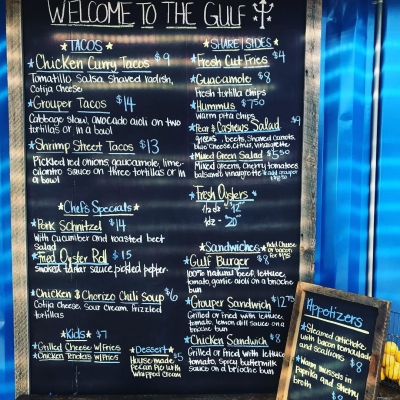 WELCOME TO THE GULF
★TACOS★
★Chicken Curry Tacos $9
Tomatillo Salsa, Shaved radish,
Cotija Cheese
★Grouper Tacos $14
Cabbage Slaw, avocado aioli on two
tortillas or in a bowl
★Shrimp Street Tacos $13
Pickled red onions, guacamole, lime-
cilantro sauce on three tortillas or in
a bowl
★Chef's Specials★
★Pork Schnitzel $14
with cucumber and roasted beet
Salad
★Fried Oyster Roll $15
smoked tartar sauce pickled pepper
★Chicken & Chorizo Chili Soup $6
Cotija Cheese, Sour Cream, Frizzled
tortillas
★Kids★ $7
★Grilled Cheese w/Fries
★Chicken Tenders w/Fries
★Dessert★
House made $5
Pecan Pie with
Whipped Cream
★SHARE|SIDES★
★Fresh Cut Fries $4
★Guacamole $8
Fresh tortilla Chips
★Hummus $7.50
warm pita chips
★Pear & Cashews Salad $9
greens, beets, Shaved Carrots,
blue Cheese, Citrus, Vinaigrette
★Mixed Green Salad $5.50
Mixed greens, Cherry tomatoes
balsamic vinaigrette
★Fresh Oysters★
1/2 dz - $12
dz - 20
★Sandwiches★
Add Cheese
or bacon
★Gulf Burger $8
100% natural beef, lettuce,
tomato, garlic aioli on a brioche
bun
★Grouper Sandwich $12.75
Grilled or fried with lettuce,
tomato, lemon dill sauce on a
brioche bun
★Chicken Sandwich $8
Grilled or fried with lettuce
tomato, Spicy buttermilk
sauce on a brioche bun
Appetizers
★Steamed artichoke
with bacon remoulade
and scallions $8
★Warm mussels in
paprika and sherry
broth $8